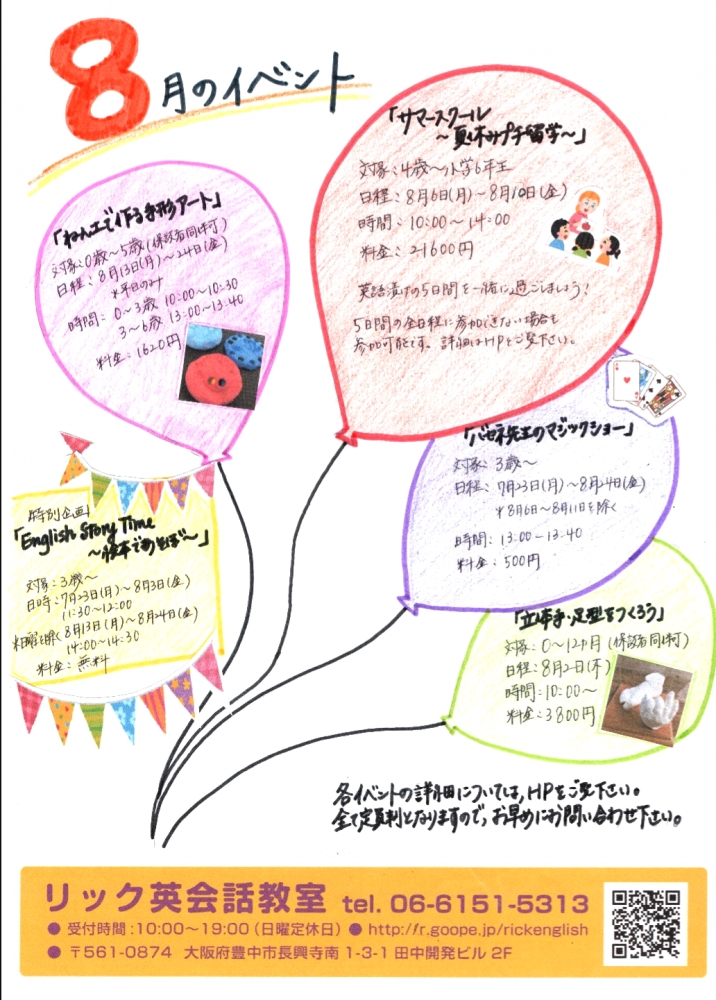 8月のイベント
「サマースクール
～夏休みプチ留学～」
対象：4歳～小学6年生
日程：8月6日(月)～8月10日(金)
時間：10:00～14:00
料金：21600円
英語漬けの5日間を一緒に過ごしましょう！
5日間の全日程に参加できない場合も
参加可能です。詳細はHPをご覧下さい。
「ねん土で作る手形アート」
対象：0歳～5歳(保護者同伴可)
日程：8月13日(月)～24日(金)
※平日のみ
時間：0～3歳 10:00～10:30
3～6歳 13:00～13:40
料金：1620円
「バセネ先生のマジックショー」
対象：3歳～
日程：7月23日(月)～8月24日(金)
※8月6日～8月11日を除く
時間：13:00～13:40
料金：500円
特別企画！
「English Story Time
～絵本であそぼ～」
対象：3歳～
日時：7月23日(月)～8月3日(金)
11:30～12:00
8月13日(月)～8月24日(金)
14:00～14:30
料金：無料
「立体手・足型をつくろう」
対象：0～12ヶ月(保護者同伴可)
日程：8月2日(木)
時間：10:00～
料金：3800円
各イベントの詳細については、HPをご覧下さい。
全て定員制となりますので、お早めにお問い合わせ下さい。
リック英会話教室 tel. 06-6151-5313
● 受付時間：10:00～19:00（日曜定休日） ● http://r.goope.jp/rickenglish
● 〒561-0874 大阪府豊中市長興寺南 1-3-1 田中開発ビル 2F